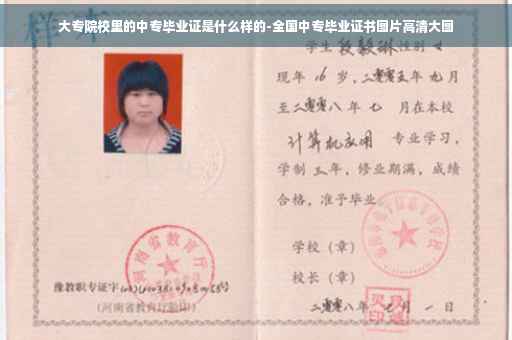 大专院校里的中专毕业证是什么样的-全国中专毕业证书图片高清大图
样本
学生段毅琳性别女
现年16岁,二零零五年九月
至二零零八年七月在本校
计算机应用 专业学习,
学制三年,修业期满,成绩
合格,准予毕业。
学校(章)
校长(章)
河南省教育厅
豫教职专证字
(河南省教育厅验印)
二零零八年 月一日